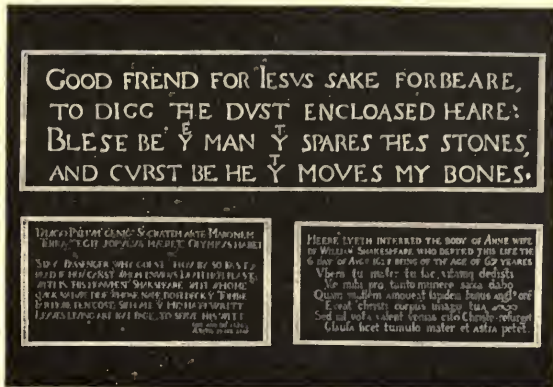 GOOD FREND FOR IESVS SAKE FORBEARE,
TO DIGG THE DVST ENCLOASED HEARE:
BLESE BE Yᴱ MAN Yᵀ SPARES THES STONES,
AND CVRST BE HE Yᵀ MOVES MY BONES.
SOCRATEM ARTE MARONEM
TEGIT POPVLVS MÆRET OLYMPVS HABET
STAY PASSENGER WHY GOEST THOV BY SO FAST
READ IF THOV CANST WHOM ENVIOVS DEATH HATH PLAST
WITH IN THIS MONVMENT SHAKSPEARE WITH WHOME
QVICK NATVRE DIDE WHOSE NAME DOTH DECK Y TOMBE
COST HE HATH WRITT
LEAVES LIVING ART BVT PAGE, TO SERVE HIS WITT
HEERE LYETH INTERRED THE BODY OF ANNE WIFE
OF WILLIAM SHAKESPEARE WHO DEPTED THIS LIFE THE
6 DAY OF AVGV BEING OF THE AGE OF 67 YEARES
Vbera tu mater tu lac, vitamq dedisti
Væ mihi pro tanto munere saxa dabo
Quam mallem amoueat lapidem bonus angl ore
Exeat christi corpus imago tua
Sed nil vota valent venias cito Christe resurget
Clausa licet tumulo mater et astra petet.